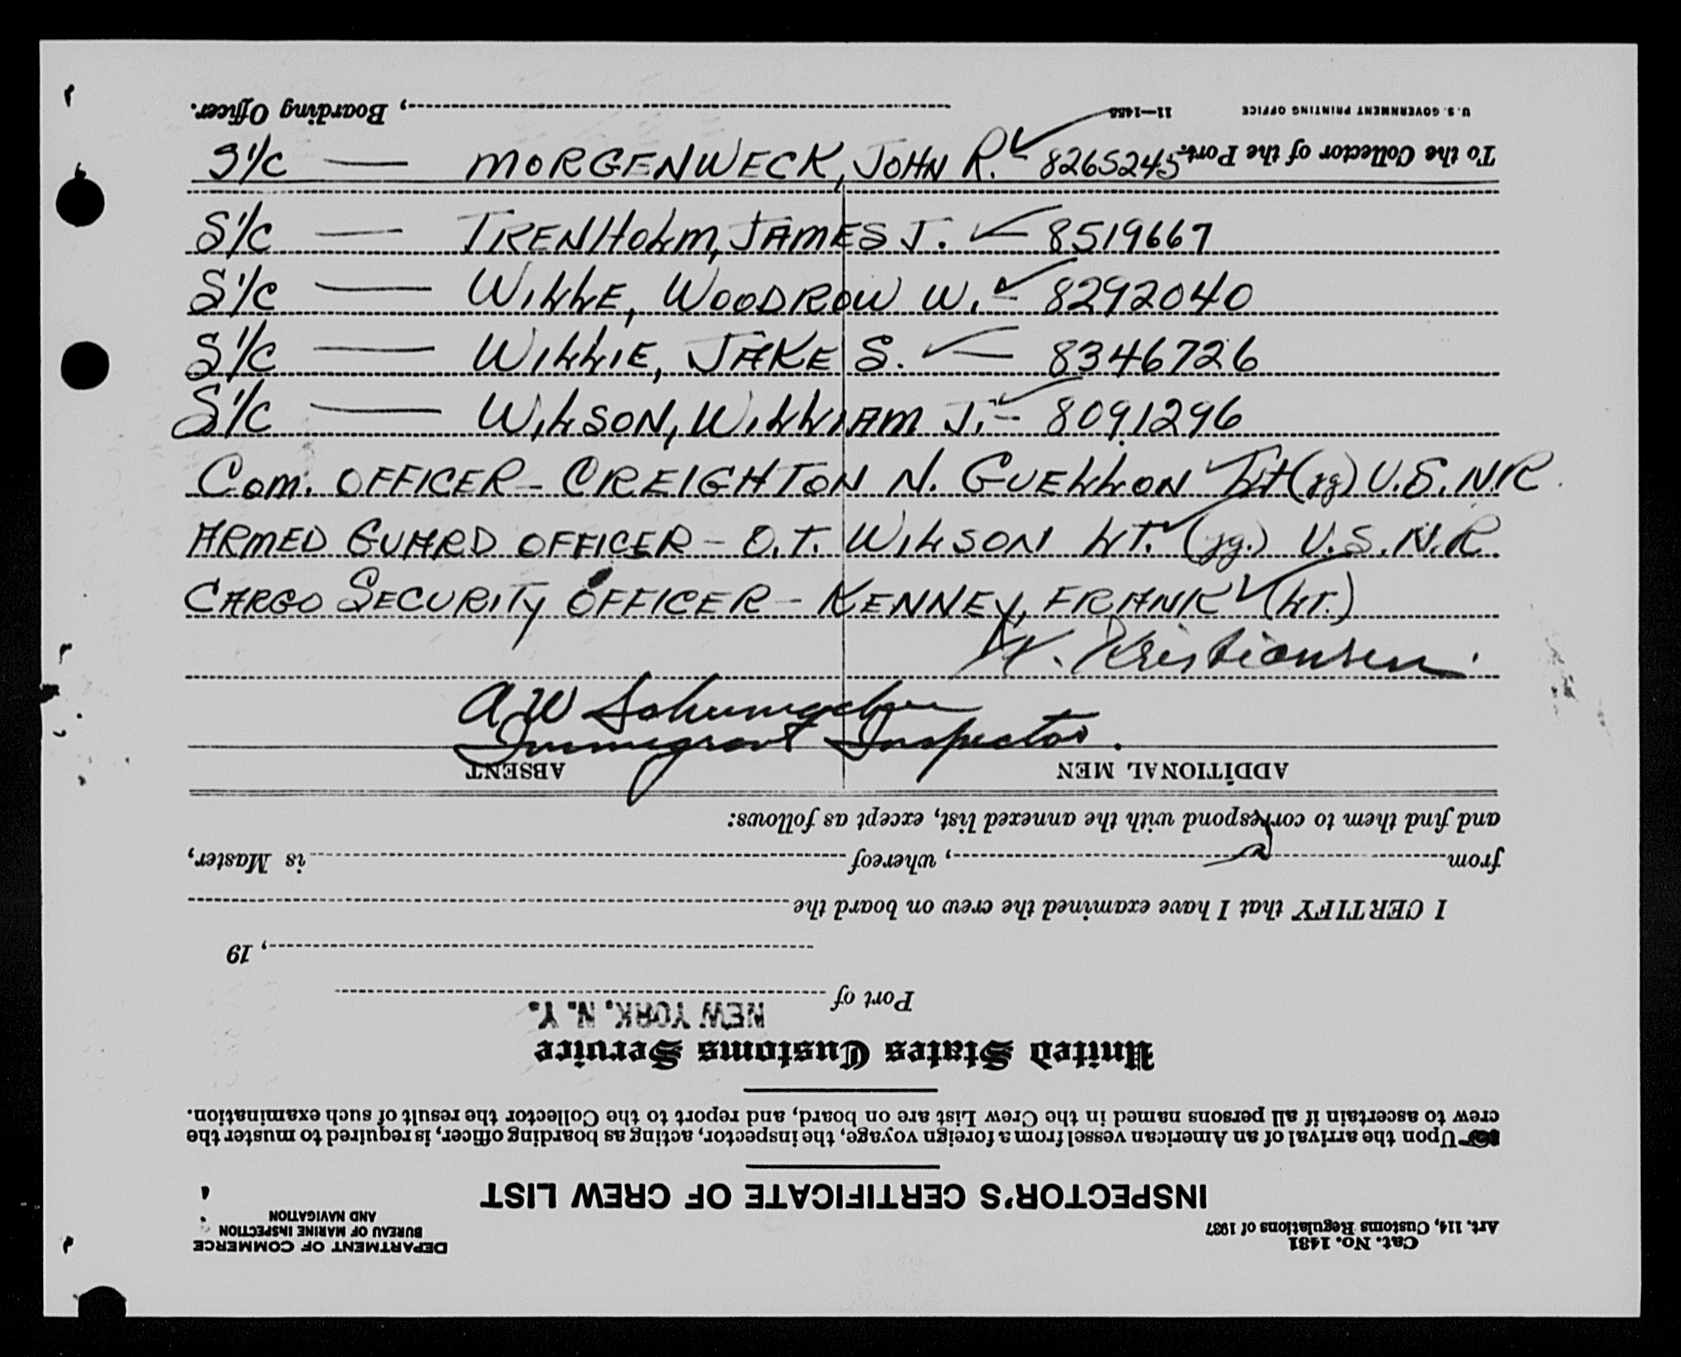 S1/c — MORGENWECK, JOHN R. ✓ - 8265245
S1/c — TRENHOLM, JAMES J. ✓ - 8519667
S1/c — WILLE, WOODROW W. ✓ - 8292040
S1/c — WILLIE, JAKE S. ✓ - 8346726
S1/c — WILSON, WILLIAM J. ✓ - 8091296
Com. OFFICER - CREIGHTON N. GUELLON ✓ Lt (jg) U.S.N.R.
ARMED GUARD OFFICER - O.T. WILSON LT. ✓ (jg.) U.S.N.R.
CARGO SECURITY OFFICER - KENNEY, FRANK ✓ (LT.)
K. Kristiansen.
A W Schumacher
Immigrant Inspector.
Cat. No. 1481
Art. 114, Customs Regulations of 1937
DEPARTMENT OF COMMERCE
BUREAU OF MARINE INSPECTION
AND NAVIGATION
INSPECTOR'S CERTIFICATE OF CREW LIST
☞ Upon the arrival of an American vessel from a foreign voyage, the inspector, acting as boarding officer, is required to muster the
crew to ascertain if all persons named in the Crew List are on board, and report to the Collector the result of such examination.
United States Customs Service
NEW YORK, N. Y.
Port of
, 19
I CERTIFY that I have examined the crew on board the
from , whereof is Master,
and find them to correspond with the annexed list, except as follows:
ADDITIONAL MEN ABSENT
To the Collector of the Port.
, Boarding Officer.
U. S. GOVERNMENT PRINTING OFFICE 11—1455